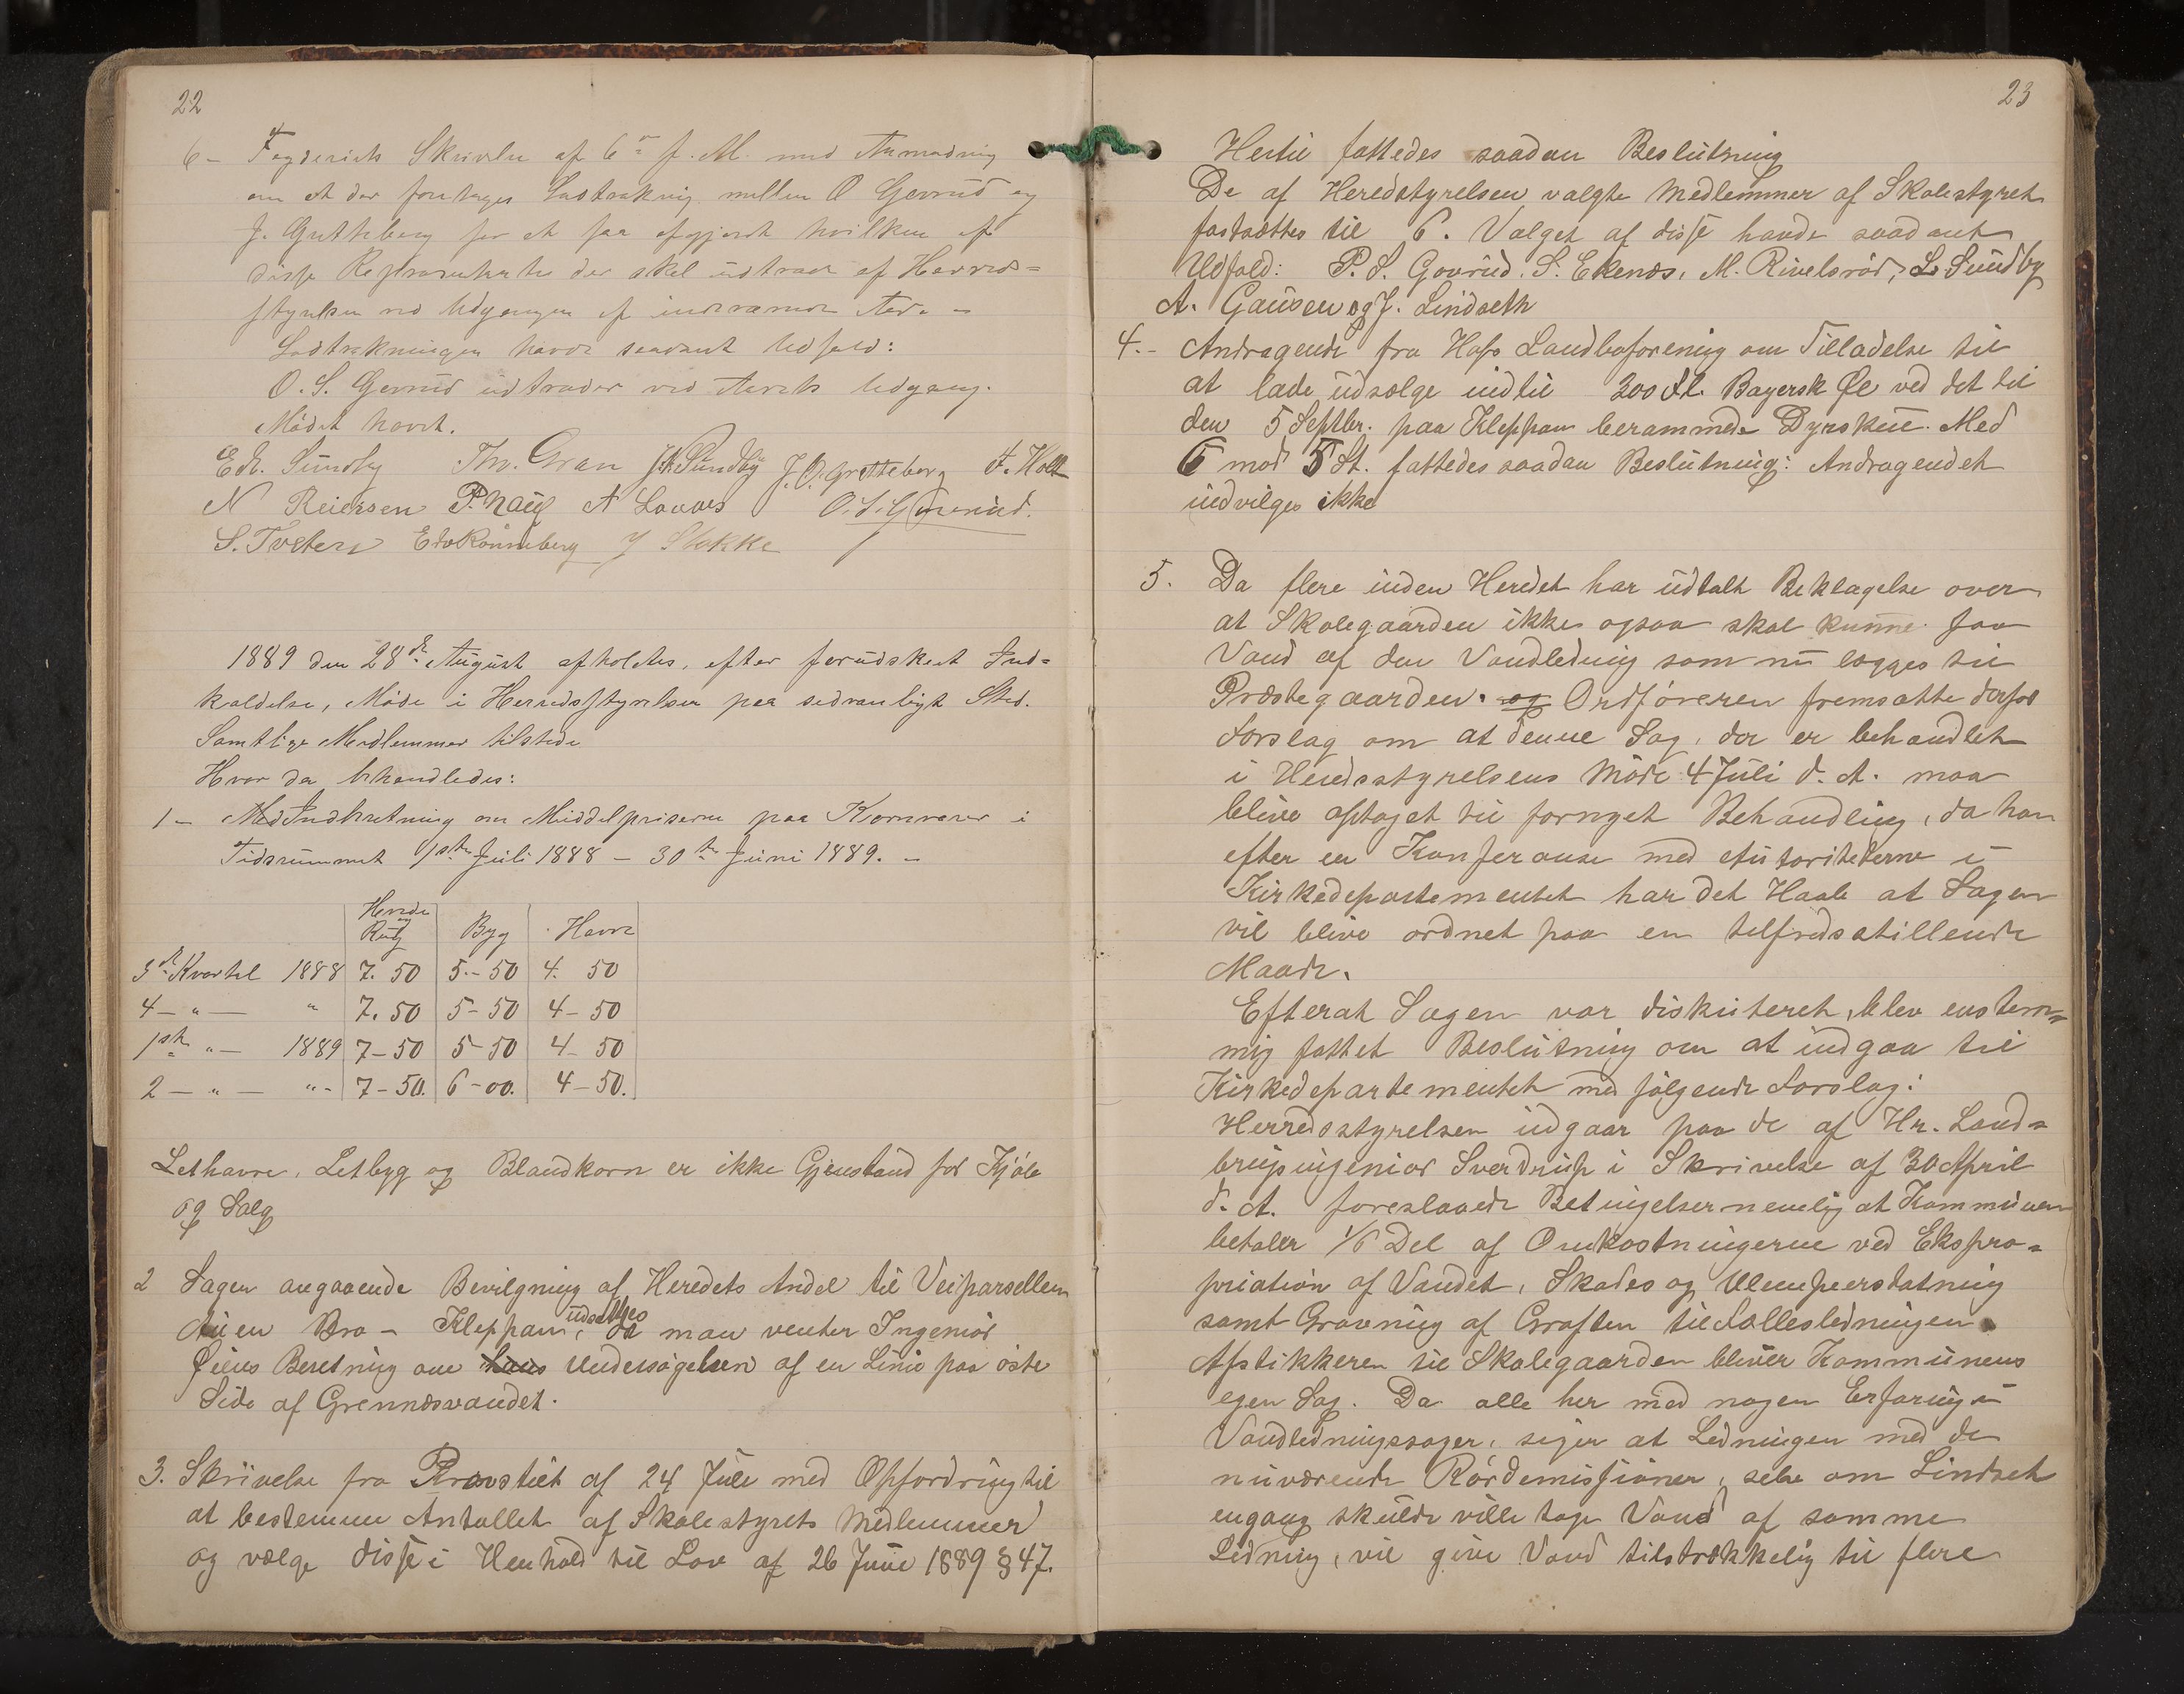 22
6 - Fogderiets Skrivelse af 6te f. M. med Anmodning
om at der foretages Lodtrækning mellem O Govrud og
J. Grytteberg for at faa afgjordt hvilken af
disse Repræsentanter der skal udtræde af Herreds=
styrelsen ved Udgangen af indeværende Aar. -
Lodtrækningen havde saadant Udfald:
O. S. Govrud udtræder ved Aarets Udgang.
Mödet hævet.
Edv. Sundby Thv. Gran J. A. Sundby J. O. Grytteberg F. Holt
N Reiersen P. Haug A Lovaas O. S. Govrud.
S. Tveten Edv Rönneberg J Stokke
1889 den 28de August afholdtes, efter forudskeet Ind=
kaldelse, Möde i Herredsstyrelsen paa sedvanligt Sted.
Samtlige Medlemmer tilstede
Hvor da behandledes:
1 - Indberetning om Middelpriserne paa Kornvarer i
Tidsrummet 1ste Juli 1888 - 30te Juni 1889. -
Hvede
og
Rug Byg Havre
3de Kvartal 1888 7. 50 5. - 50 4. 50
4 - " - " 7. 50 5 - 50 4 - 50
1ste " - 1889 7 - 50 5 - 50 4 - 50
2 - " - " - 7 - 50. 6 - 00. 4 - 50.
Lethavre, Letbyg og Blandkorn er ikke Gjenstand for Kjöb
og Salg
2 Sagen angaaende Bevilgning af Heredets Andel til Veiparsellen
Auen Bro - Kleppan, udsættes da man venter Ingeniör
Öiens Beretning om hans Undersögelsen af en Linie paa öste
Side af Grennesvandet.
3. Skrivelse fra Provstiet af 24 Juli med Opfordring til
at bestemme Antallet af Skolestyrets Medlemmer
og vælge disse i Henhold til Lov af 26 Juni 1889 § 47.
23
Hertil fattedes saadan Beslutning
De af Heredstyrelsen valgte Medlemmer af Skolestyret
fastsættes til 6. Valget af disse havde saadant
Udfald: P. S. Govrud, S. Ekenes, M. Rivelsröd, L. Sundby
A. Gausen og J. Lindseth
4. - Andragende fra Hofs Landboforening om Tilladelse til
at lade udsælge indtil 300 Fl. Bayersk Öl ved det til
den 5 Septbr. paa Kleppan berammede Dyrskue. Med
6 mod 5 St. fattedes saadan Beslutning: Andragendet
indvilges ikke
5. Da flere inden Heredet har udtalt Beklagelse over
at Skolegaarden ikke ogsaa skal kunne faa
Vand af den Vandledning som nu lægges til
Præstegaarden. og Ordföreren fremsatte derfor
Forslag om at denne Sag, der er behandlet
i Heredsstyrelsens Möde 4 Juli d. A. maa
blive optaget til fornyet Behandling, da han
efter en Konferanse med Autoriteterne i
Kirkedepartementet har det Haab at Sagen
vil blive ordnet paa en tilfredsstillende
Maade.
Efterat Sagen var diskuteret, blev enstem=
mig fattet Beslutning om at indgaa til
Kirkedepartementet med fölgende Forslag:
Herredsstyrelsen indgaar paa de af Hr. Land=
brugsingeniör Sverdrup i Skrivelse af 30 April
d. A. foreslaaede Betingelser nemlig at Kommunen
betaler 1/6 Del af Omkostningerne ved Ekspro=
priation af Vandet, Skades og Ulempeerstatning
samt Gravning af Gröften til Fællesledningen.
Afstikkeren til Skolegaarden bliver Kommunens
egen Sag. Da alle her med nogen Erfaring i
Vandledningssager, siger at Ledningen med de
nuværende Rördemissioner, selv om Lindset
engang skulde ville tage Vand af samme
Ledning, vil give Vand tilstrækkelig til flere